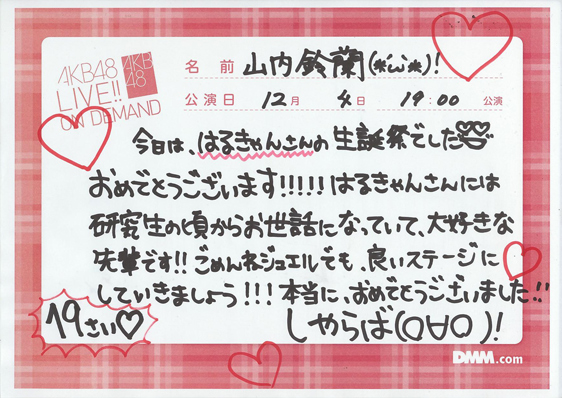 AKB48
LIVE!!
ON DEMAND
AKB
48
名前 山内鈴蘭(*´ω`*)!
公演日 12月 4日 19:00 公演
今日は、はるきゃんさんの生誕祭でした
おめでとうございます!!!!!はるきゃんさんには
研究生の頃からお世話になっていて、大好きな
先輩です!!ごめんねジュエルでも、良いステージに
していきましょう!!!本当に、おめでとうございました!!
19さい♡
しゃらば(○∀○)!
DMM.com